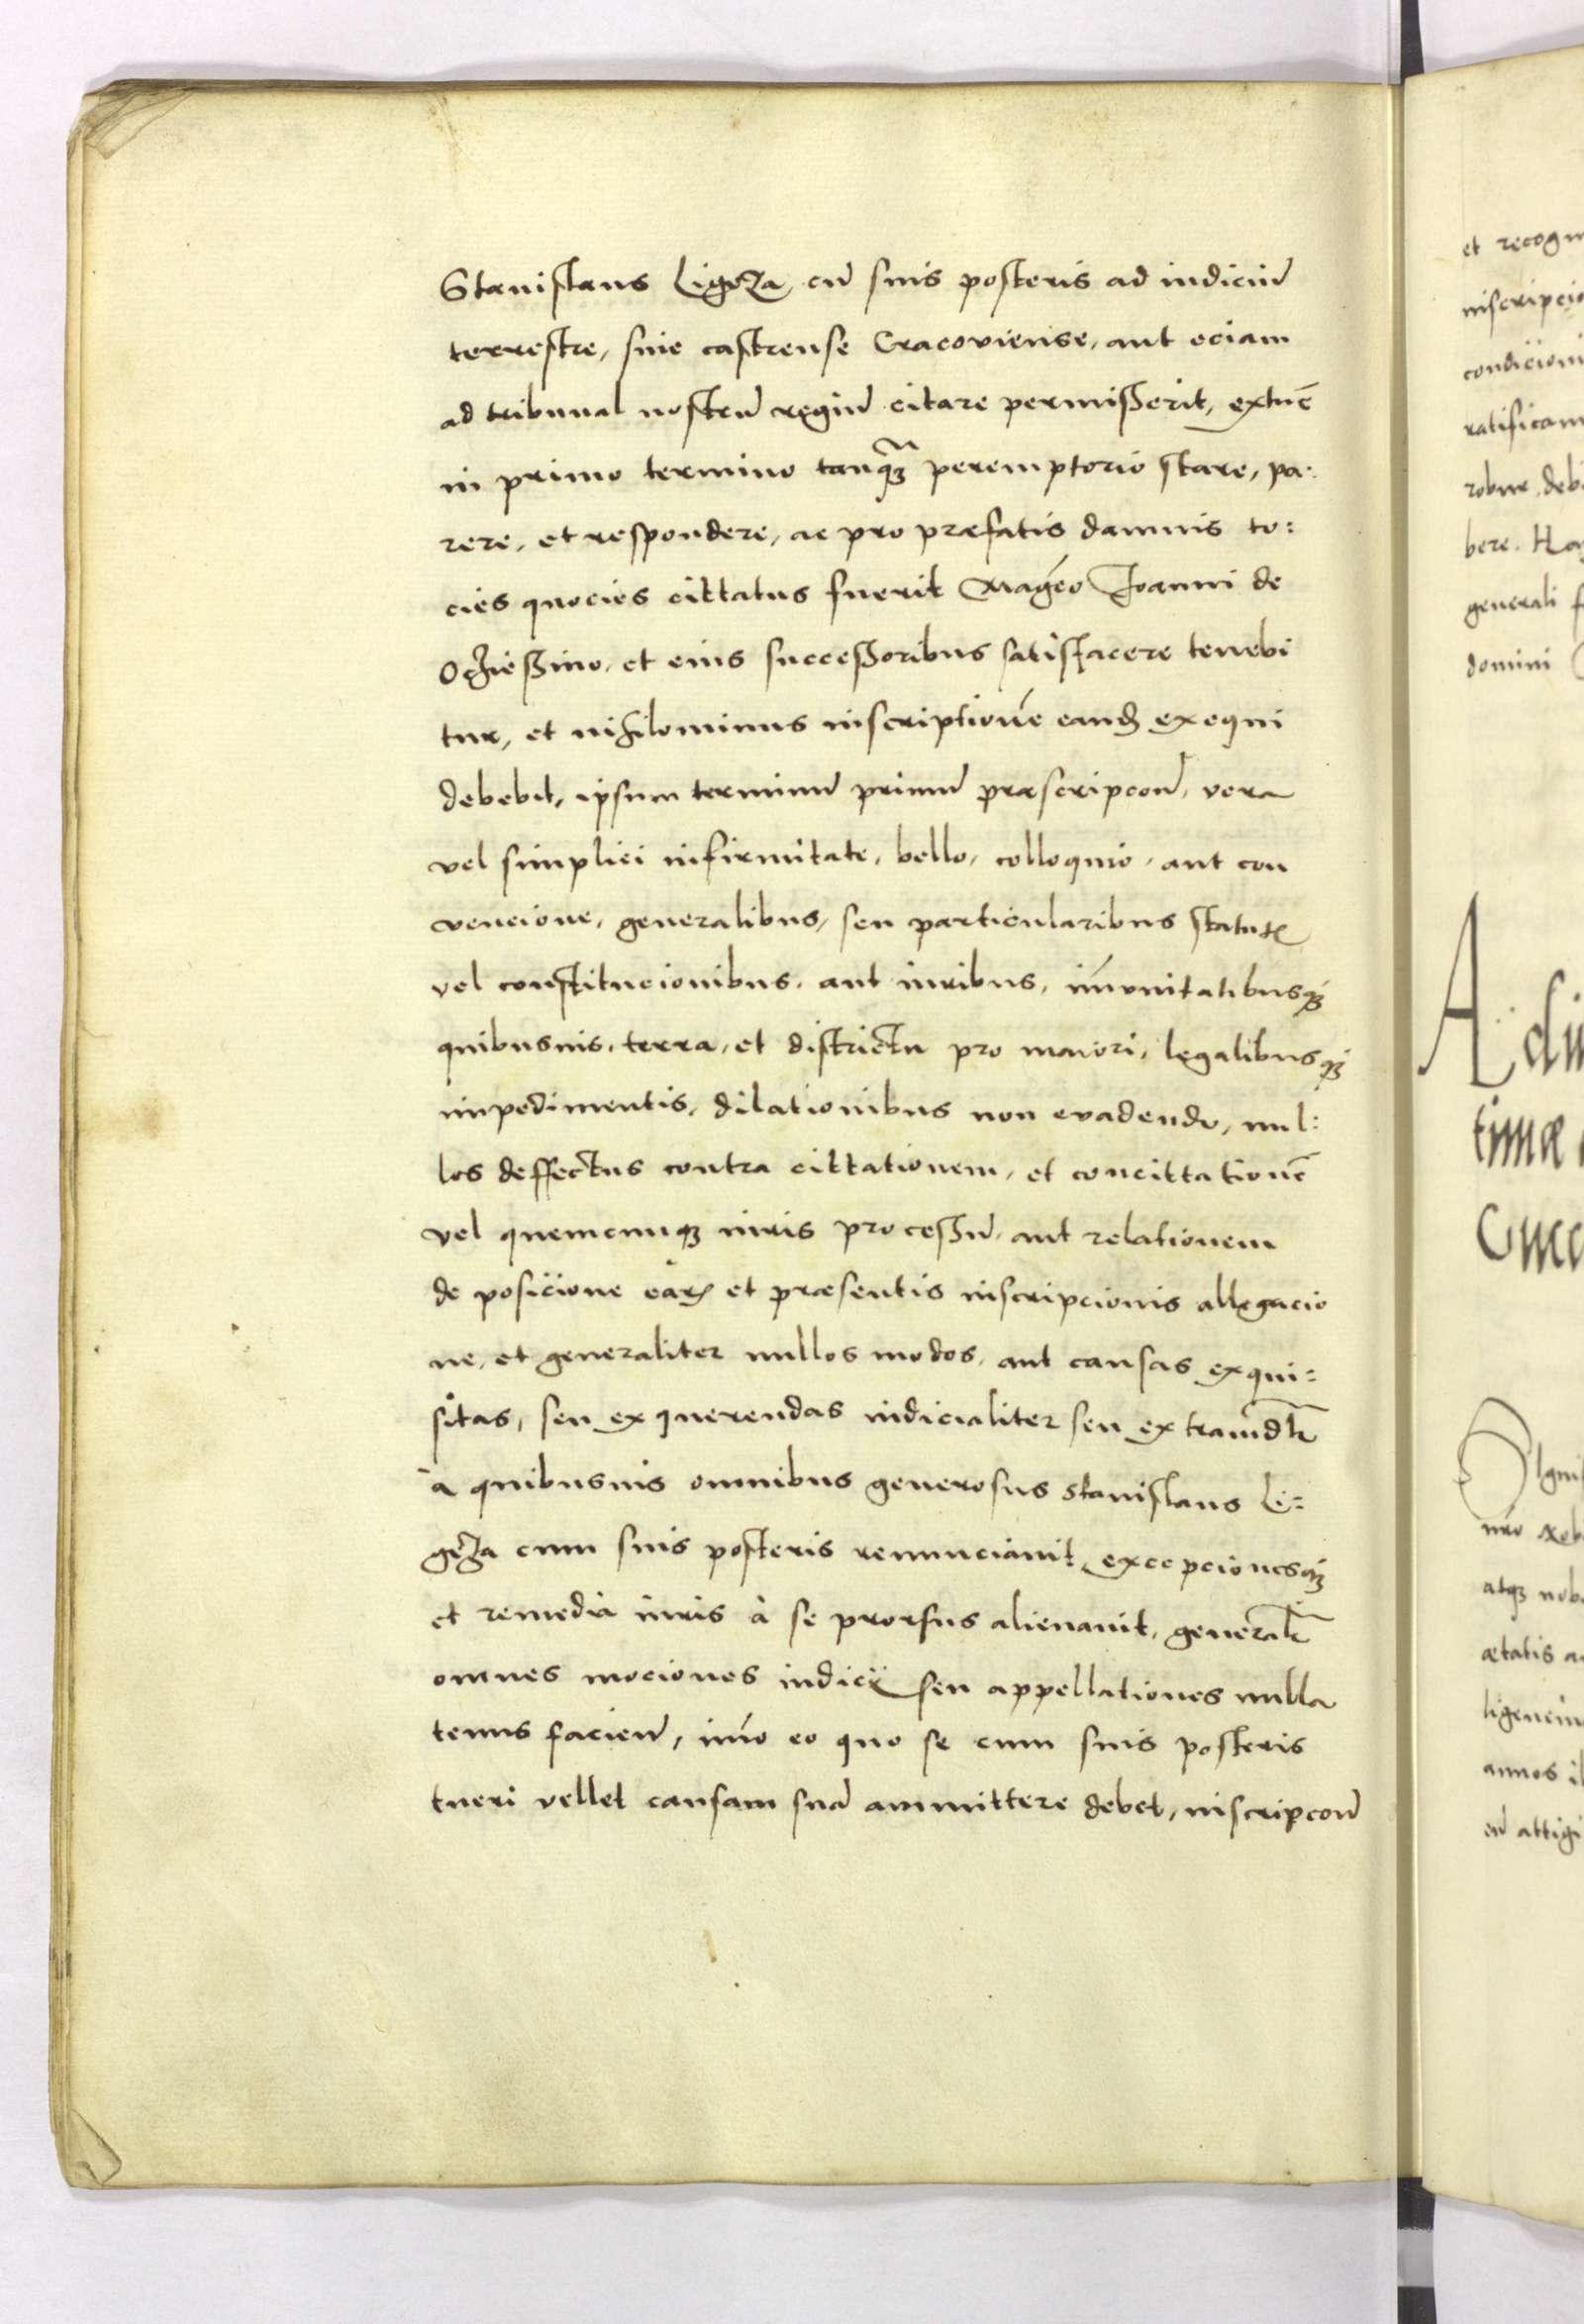 Stanislaus Ligęza, cū suis posteris ad iudiciū
terrestre, siue castrense Cracoviense, aut eciam
ad tribunal nostrū regiū citare permisserit, extūc
in primo termino tanq̄ꝫ peremptorio stare, pa:
rere, et respondere, ac pro præfatis damnis to:
cies quocies cittatus fuerit Magc̄o Joanni de
Oczieszino, et eius successoribus satisfacere tenebi
tur, et nihilominus inscriptionē eandē exequi
debebit, ipsum terminū primū præscripcoū, vera
vel simplici infirmitate, bello, colloquio, aut con
vencione, generalibus, seu particularibus statutꝭ
vel constitucionibus, aut iuribus, im̄unitatibusqꝫ
quibusuis, terra, et districtu pro maiori, legalibusqꝫ
impedimentis, dilationibus non evadendo, nul:
los deffectus contra cittationem, et concittationē
vel quemcunqꝫ iuris processū, aut relationem
de posicione eaꝝ et præsentis inscripcionis allegacio
ne, et generaliter nullos modos, aut causas exqui=
sitas, seu exquerendas iudicialiter seu extraiudlr̄
à quibusuis omnibus generosus Stanislaus Li=
gęza cum suis posteris renunciauit, excepcionesqꝫ
et remedia iuris à se prorsus alienauit, generalr̄
omnes mociones iudicij seu appellationes nulla
tenus facieū, im̄o eo quo se cum suis posteris
tueri vellet causam suā ammittere debet, inscripcoū
et recogn
inscripcio
condicioni
ratificam
robur deb
bere. Ha
generali f
domini
Adi
timæ
Cuco
atqꝫ nob
ætatis a
annos il
attigi